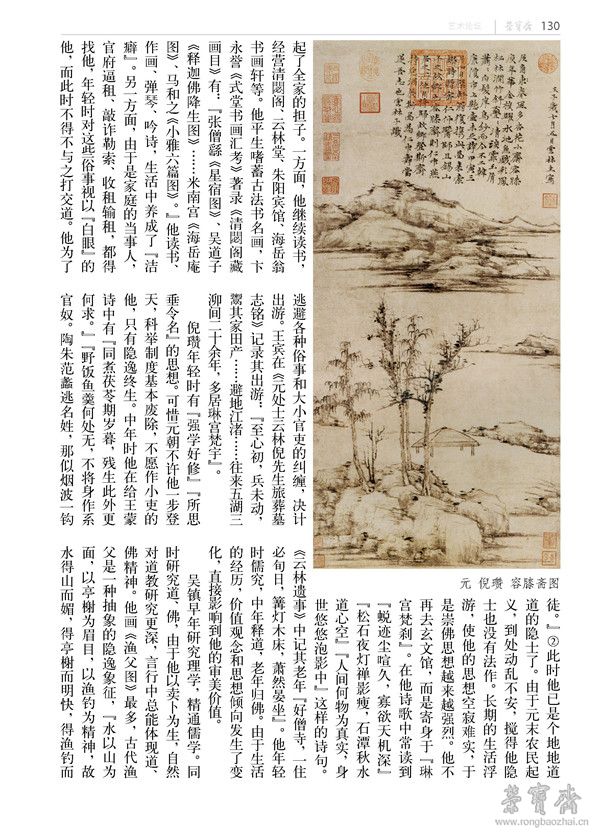 艺术论坛 荣宝斋 130
壬子歲七月五日雲林生寫
起了全家的担子。一方面，他继续读书，
经营清閟阁、云林堂、朱阳宾馆、海岳翁
书画轩等。他平生嗜蓄古法书名画，卞
永誉《式堂书画汇考》著录《清閟阁藏
画目》有：『张僧繇《星宿图》、吴道子
《释迦佛降生图》……米南宫《海岳庵
图》、马和之《小雅六篇图》。』他读书、
作画、弹琴、吟诗，生活中养成了『洁
癖』。另一方面，由于是家庭的当事人，
官府逼租、敲诈勒索、收租输租，都得
找他，年轻时对这些俗事视以『白眼』的
他，而此时不得不与之打交道。他为了
逃避各种俗事和大小官吏的纠缠，决计
出游。王宾在《元处士云林倪先生旅葬墓
志铭》记录其出游：『至心初，兵未动，
鬻其家田产……避地江渚……往来五湖三
泖间二十余年，多居琳宫梵宇』。
倪瓒年轻时有『强学好修』『所思
垂令名』的思想。可惜元朝不许他一步登
天，科举制度基本废除，不愿作小吏的
他，只有隐逸终生。中年时他在给王蒙
诗中有『同煮茯苓期岁暮，残生此外更
何求。』『野饭鱼羹何处无，不将身作系
官奴。陶朱范蠡逃名姓，那似烟波一钓
元 倪瓒 容膝斋图
徒。』②此时他已是个地地道
道的隐士了。由于元末农民起
义，到处动乱不安，搅得他隐
士也没有法作。长期的生活浮
游，使他的思想空寂难实，于
是崇佛思想越来越强烈。他不
再去玄文馆，而是寄身于『琳
宫梵刹』。在他诗歌中常读到
『蜕迹尘喧久，寡欲天机深』
『松石夜灯禅影瘦，石潭秋水
道心空』『人间何物为真实，身
世悠悠泡影中』这样的诗句。
《云林遗事》中记其老年『好僧寺，一住
必旬日，篝灯木床，萧然晏坐』。他年轻
时儒究，中年释道，老年归佛。由于生活
的经历，价值观念和思想倾向发生了变
化，直接影响到他的审美价值。
吴镇早年研究理学，精通儒学。同
时研究道、佛，由于他以卖卜为生，自然
对道教研究更深，言行中总能体现道、
佛精神。他画《渔父图》最多，古代渔
父是一种抽象的隐逸象征，『水以山为
面，以亭榭为眉目，以渔钓为精神，故
水得山而媚，得亭榭而明快，得渔钓而
荣宝斋
www.rongbaozhai.cn